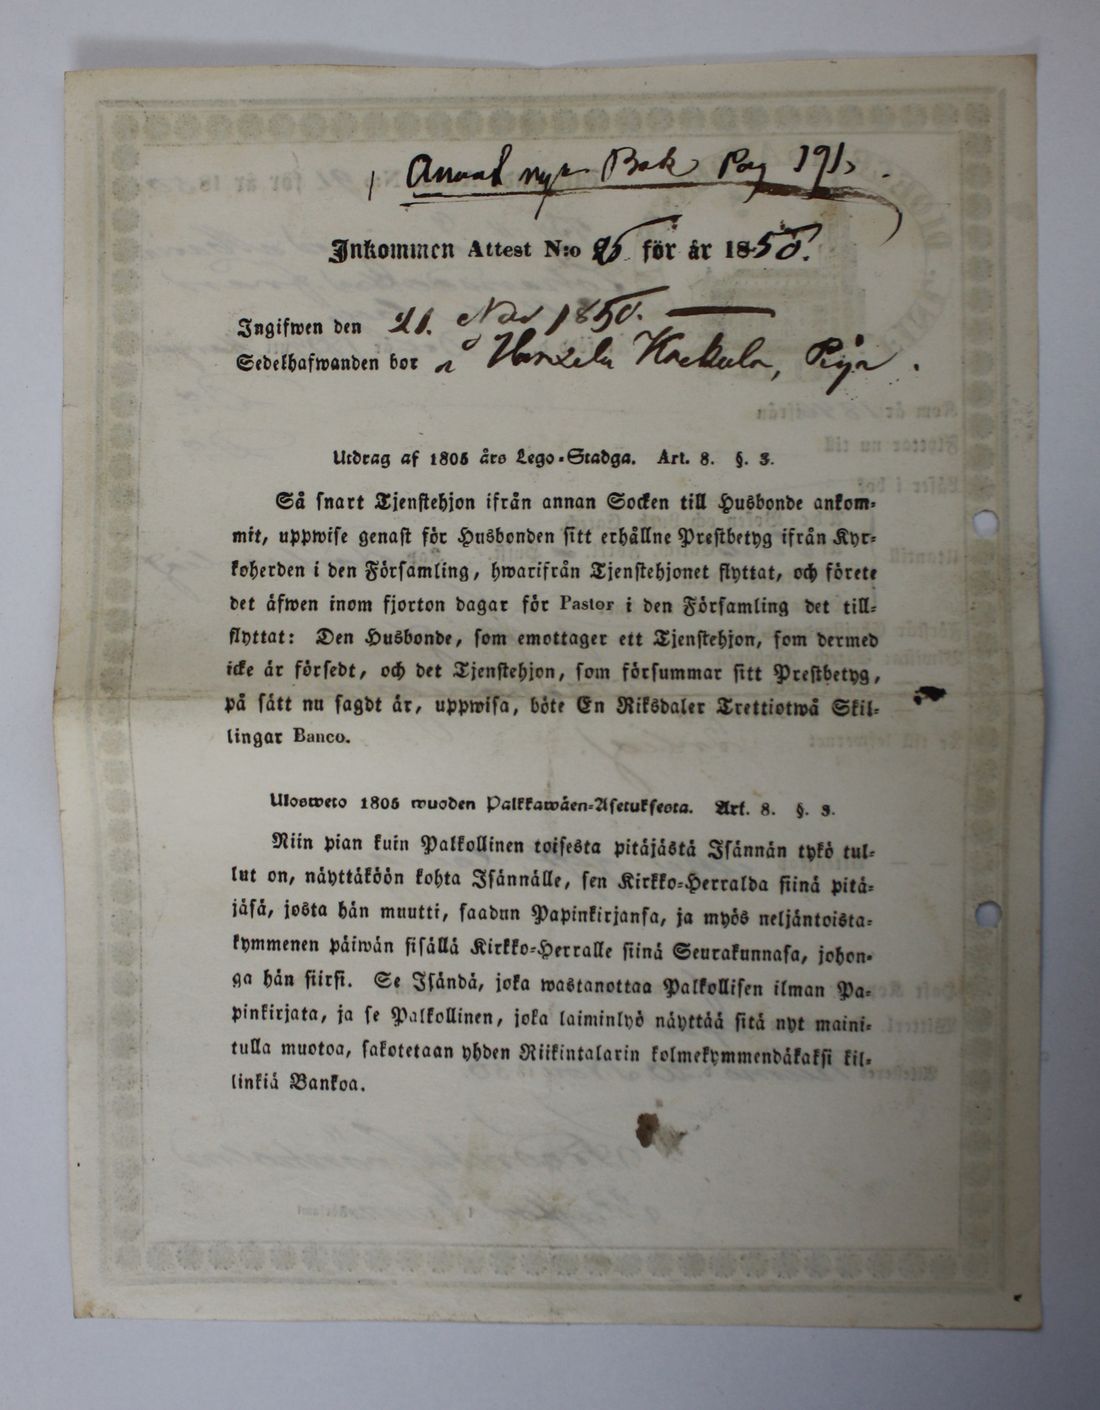 Bok Pag 191
Inkommen Attest N:o 25 för år 1850.
Ingifwen den 21. Nov 1850.
Sedelhafwanden bor i
Utdrag af 1805 års Lego-Stadga. Art. 8. §. 3.
Så snart Tjenstehjon ifrån annan Socken till Husbonde ankom-
mit, uppwise genast för Husbonden sitt erhållne Prestbetyg ifrån Kyr-
koherden i den Församling, hwarifrån Tjenstehjonet flyttat, och förete
det äfwen inom fjorton dagar för Pastor i den Församling det till-
flyttat: Den Husbonde, som emottager ett Tjenstehjon, som dermed
icke är försedt, och det Tjenstehjon, som försummar sitt Prestbetyg,
på sätt nu sagdt är, uppwisa, böte En Riksdaler Trettiotwå Skil-
lingar Banco.
Ulosweto 1805 wuoden Palkkawäen-Asetuksesta. Art. 8. §. 3.
Niin pian kuin Palkollinen toisesta pitäjästä Isännän tykö tul-
lut on, näyttäköön kohta Isännälle, sen Kirkko-Herralda siinä pitä-
jäsä, josta hän muutti, saadun Papinkirjansa, ja myös neljäntoista-
kymmenen päiwän sisällä Kirkko-Herralle siinä Seurakunnasa, johon-
ga hän siirsi. Se Isändä, joka wastanottaa Palkollisen ilman Pa-
pinkirjata, ja se Palkollinen, joka laiminlyö näyttää sitä nyt maini-
tulla muotoa, sakotetaan yhden Riikintalarin kolmekymmendäkaksi kil-
linkiä Bankoa.